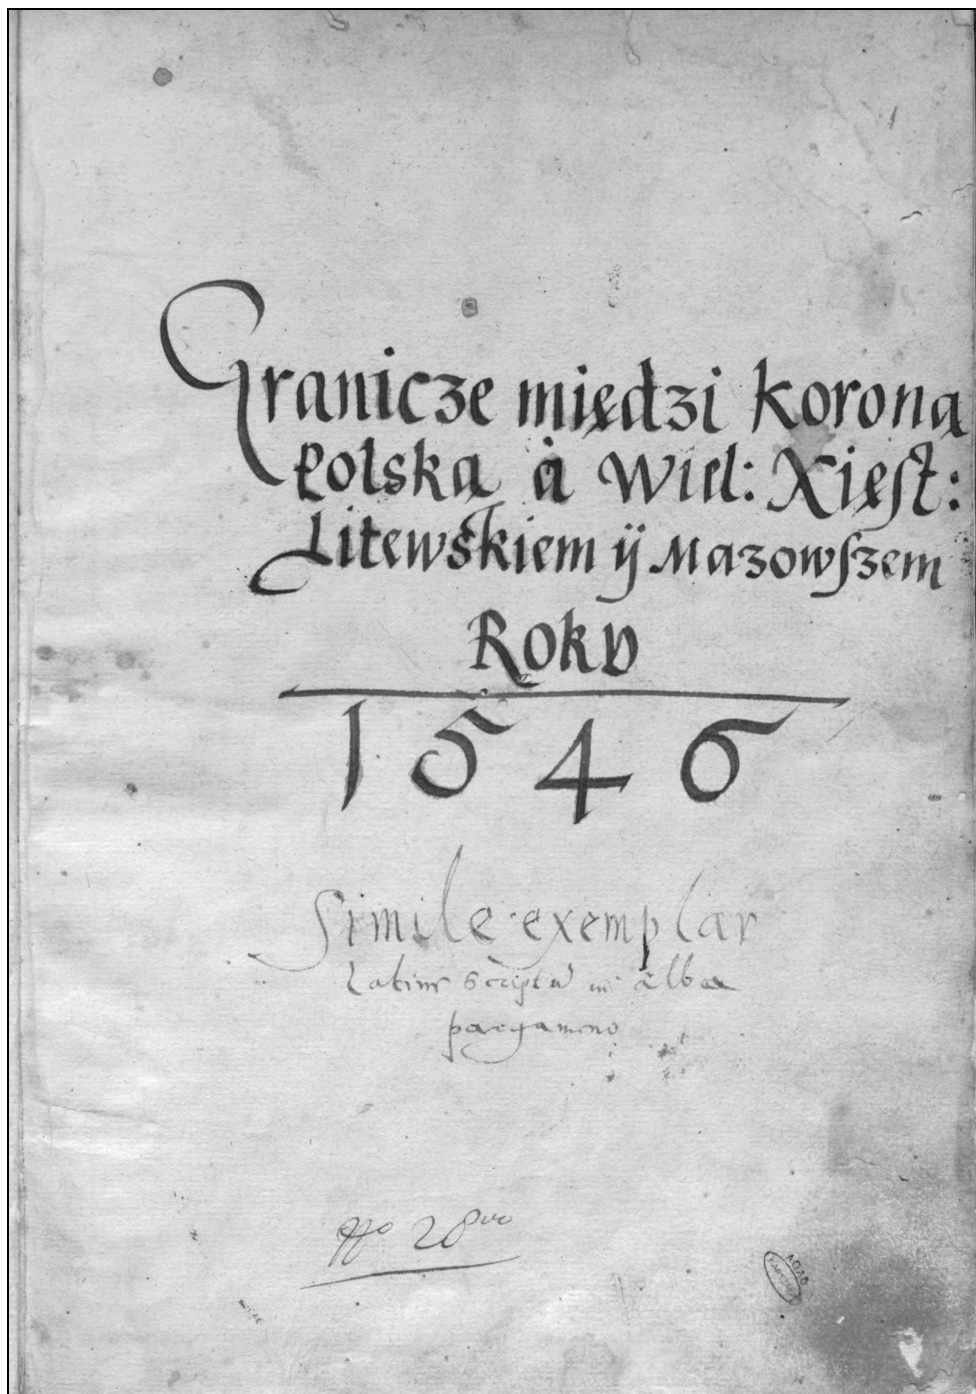 Granicze między Koroną
Polską á Wiel: Xięst:
Litewskiem ÿ Mazowszem
Rokv
1546
Simile exemplar
Latine Scriptū in alba
pargameno
No 28vo